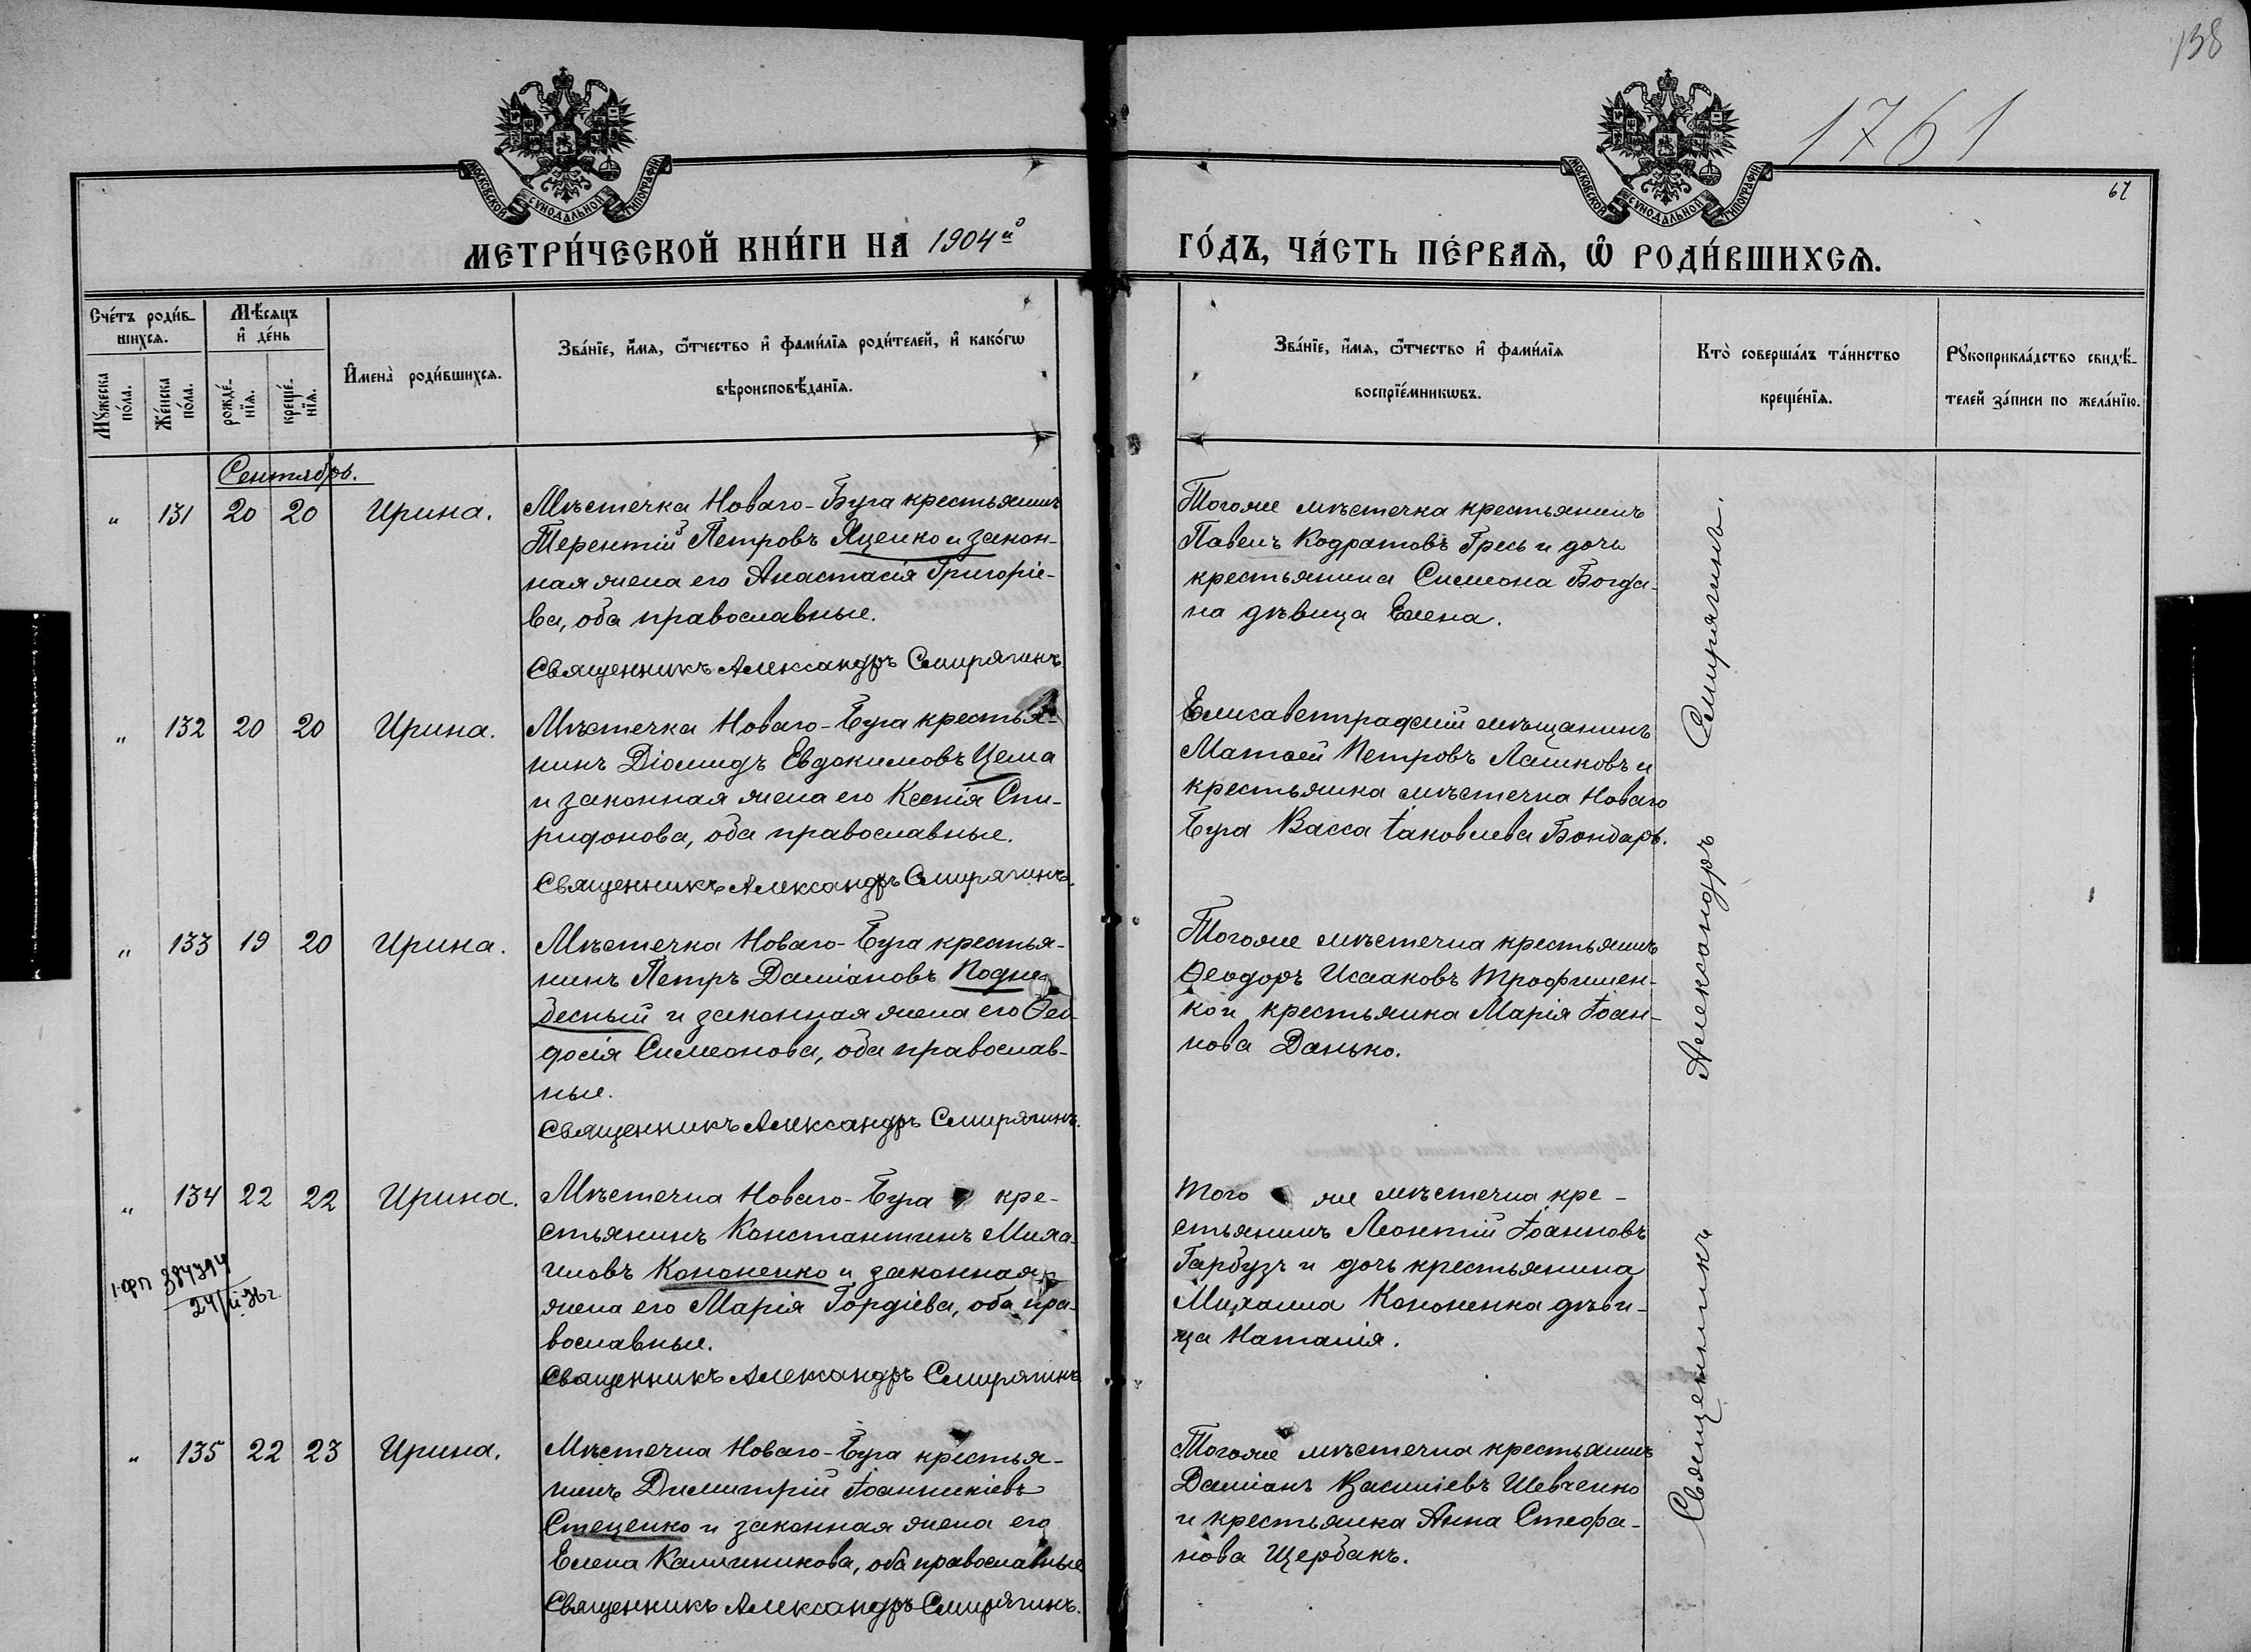 138
1761
67
МОСКОВСКОЙ СѴНОДАЛЬНОЙ ТИПОГРАФІИ
МОСКОВСКОЙ СѴНОДАЛЬНОЙ ТИПОГРАФІИ
МЕТРИ́ЧЕСКОЙ КНИ́ГИ НА 1904й
ГО́ДЪ, ЧА́СТЬ ПЕ́РВАѦ, Ѡ РОДИ́ВШИХСѦ.
Сче́тъ роди́в-
шихсѧ.
Мѣ́сѧцъ
и҆ де́нь
Мꙋ́жеска
по́ла.
Же́нска
по́ла.
рожде́-
нїѧ.
креще́-
нїѧ.
И҆мена̀ роди́вшихсѧ.
Зва́нїе, и҆́мѧ, ѻ҆́тчество и҆ фами́лїѧ роди́телей, и҆ како́гѡ
вѣроисповѣ́данїѧ.
Зва́нїе, и҆́мѧ, ѻ҆́тчество и҆ фами́лїѧ
воспрїе́мникѡвъ.
Кто̀ соверша́лъ та́инство
креще́нїѧ.
Рꙋкоприкла́дство свидѣ́-
телей за́писи по жела́нїю.
Сентябрь.
" 131 20 20 Ирина.
Мѣстечка Новаго-Буга крестьянинъ
Терентій Петровъ Яценко и закон-
ная жена его Анастасія Григоріе-
ва, оба православные.
Священникъ Александръ Смирягинъ.
Тогоже мѣстечка крестьянинъ
Павелъ Кодратовъ Гресь и дочь
крестьянина Симеона Богда-
на дѣвица Елена.
" 132 20 20 Ирина.
Мѣстечка Новаго-Буга крестья-
нинъ Діомидъ Евдокимовъ Цема
и законная жена его Ксенія Спи-
ридонова, оба православные.
Священникъ Александръ Смирягинъ.
Елисаветградскій мѣщанинъ
Матѳей Петровъ Лашковъ и
крестьянка мѣстечка Новаго
Буга Васса Іаковлева Бондарь.
" 133 19 20 Ирина.
Мѣстечка Новаго-Буга крестья-
нинъ Петръ Даміановъ Подне-
бесный и законная жена его Ѳео-
досія Симеонова, оба православ-
ные.
Священникъ Александръ Смирягинъ.
Тогоже мѣстечка крестьянинъ
Ѳеодоръ Исааковъ Трофимен-
ко и крестьянка Марія Іоан-
нова Данько.
" 134 22 22 Ирина.
24/II 36 г.
Мѣстечка Новаго-Буга кре-
стьянинъ Константинъ Миха-
иловъ Кононенко и законная
жена его Марія Гордіева, оба пра-
вославные.
Священникъ Александръ Смирягинъ
Того же мѣстечка кре-
стьянинъ Леонтій Іоанновъ
Гарбузъ и дочь крестьянина
Михаила Кононенка дѣви-
ца Наталія.
" 135 22 23 Ирина.
Мѣстечка Новаго-Буга крестья-
нинъ Димитрій Іоанникіевъ
Стеценко и законная жена его
Елена Калинникова, оба православные
Священникъ Александръ Смирягинъ.
Тогоже мѣстечка крестьянинъ
Даміанъ Василіевъ Шевченко
и крестьянка Анна Стефа-
нова Щербакъ.
Священникъ Александръ Смирягинъ.